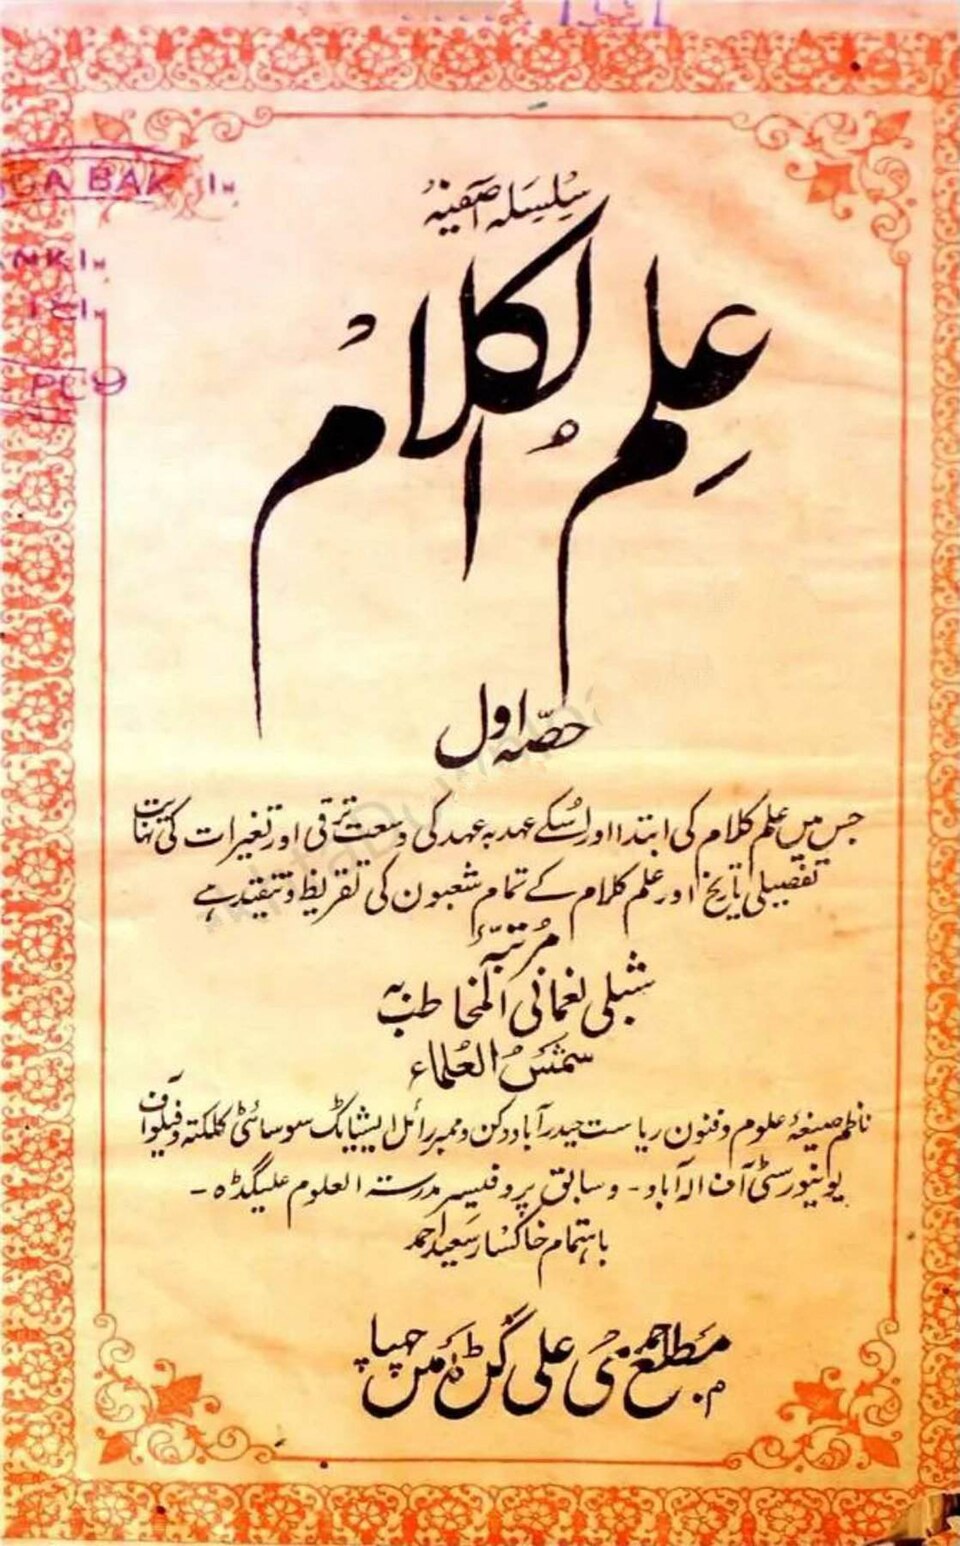 سلسلہ آصفیہ
علم الکلام
حصہ اول
جس میں علم کلام کی ابتدا اور اُسکے عہد بہ عہد کی وسعت ترقی اور تغیرات کی نہایت
تفصیلی تاریخ اور علم کلام کے تمام شعبون کی تقریظ و تنقید ہے
مرتبہٗ
شبلی نعمانی المخاطب بہ
شمسُ العُلماء
ناظم صیغۂ علوم و فنون ریاست حیدرآباد دکن و ممبر رائل ایشیاٹک سوسائٹی کلکتہ و فیلو آف
یونیورسٹی آف الہ آباد - و سابق پروفیسر مدرستہ العلوم علیگڈہ -
باہتمام خاکسار سعید احمد
مطبع احمدی علی گڑہ میں چھپا